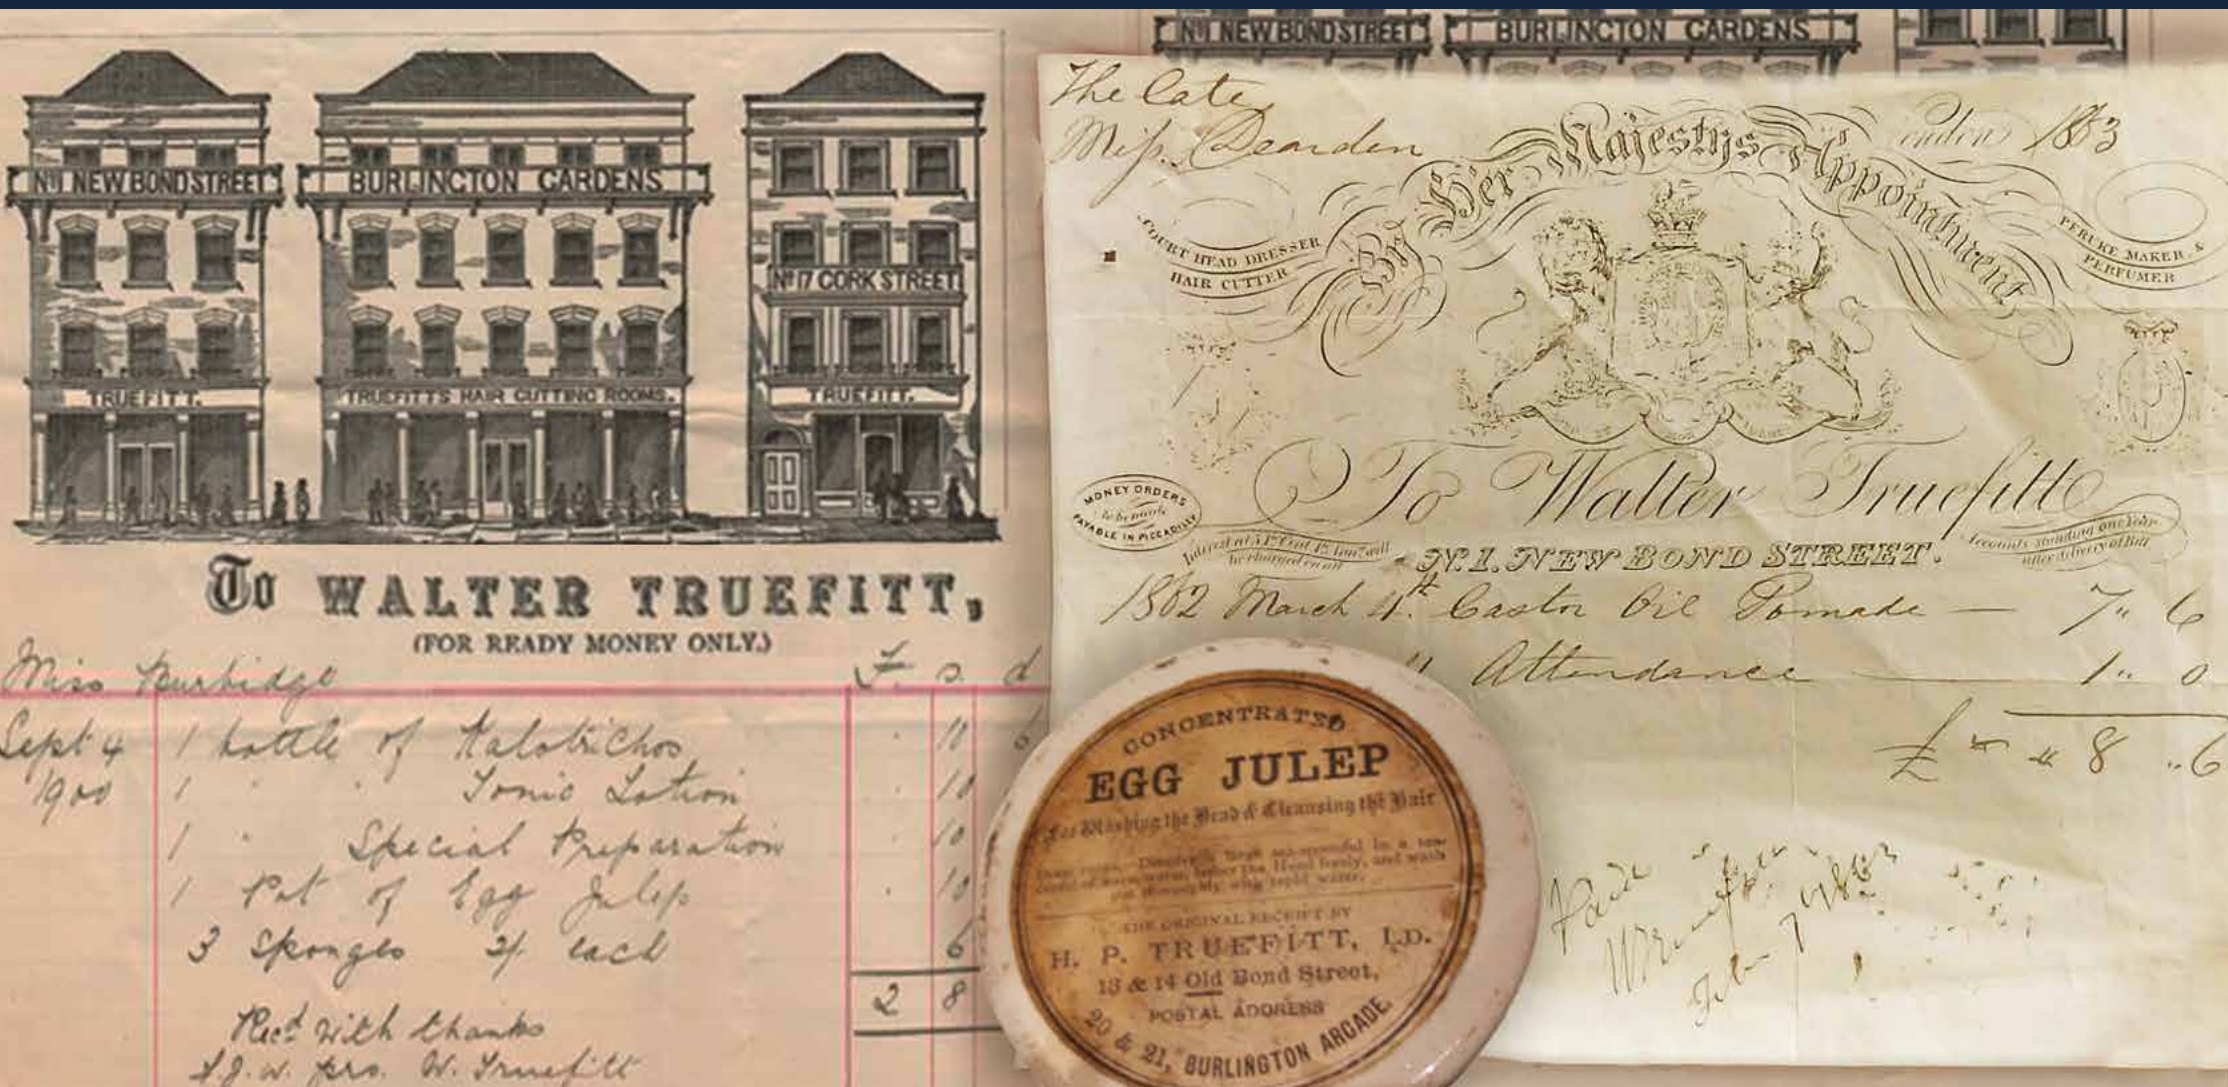 No 1 NEW BOND STREET
BURLINGTON GARDENS
No 17 CORK STREET
TRUEFITT.
TRUEFITT'S HAIR CUTTING ROOMS.
TRUEFITT.
To WALTER TRUEFITT,
(FOR READY MONEY ONLY.)
Miss Burbidge £ s. d
Sept 4 1 bottle of Kalotrichos 10
1900 1 " " Tonic Lotion 10
1 " Special Preparation 10
1 Pot of Egg Julep 10
3 Sponges 2/ each 6
2 8
Recd with thanks
pro. W. Truefitt
No 1 NEW BOND STREET
BURLINGTON GARDENS
The late
Miss Dearden
1863
By Her Majestys Appointment
COURT HEAD DRESSER
HAIR CUTTER
PERUKE MAKER &
PERFUMER
To Walter Truefitt
MONEY ORDERS
to be made
PAYABLE IN PICCADILLY
Interest at 5 Pr Cent Pr Ann. will
be charged on all
Accounts standing one Year
after delivery of Bill
No. 1. NEW BOND STREET.
1862 March 4th. Castor Oil Pomade — 7" 6
" Attendance — 1" 0
£ " " 8 " 6
Paid
Feb 7 1863
CONCENTRATED
EGG JULEP
For Washing the Head & Cleansing the Hair
THE ORIGINAL RECEIPT BY
H. P. TRUEFITT, LD.
13 & 14 Old Bond Street,
POSTAL ADDRESS
20 & 21, BURLINGTON ARCADE